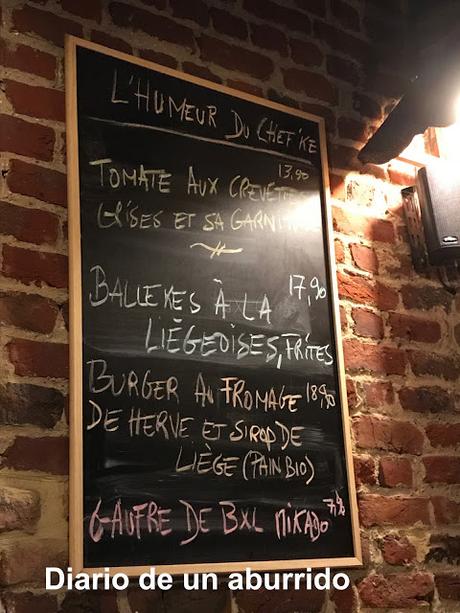 L'HUMEUR DU CHEF'KE
13,90
TOMATE AUX CREVETTES
GRISES ET SA GARNITURE
17,90
BALLEKES À LA
LIÉGEOISES, FRITES
BURGER AU FROMAGE 18,90
DE HERVE ET SIROP DE
LIÈGE (PAIN BIO)
GAUFRE DE BXL MIKADO
Diario de un aburrido